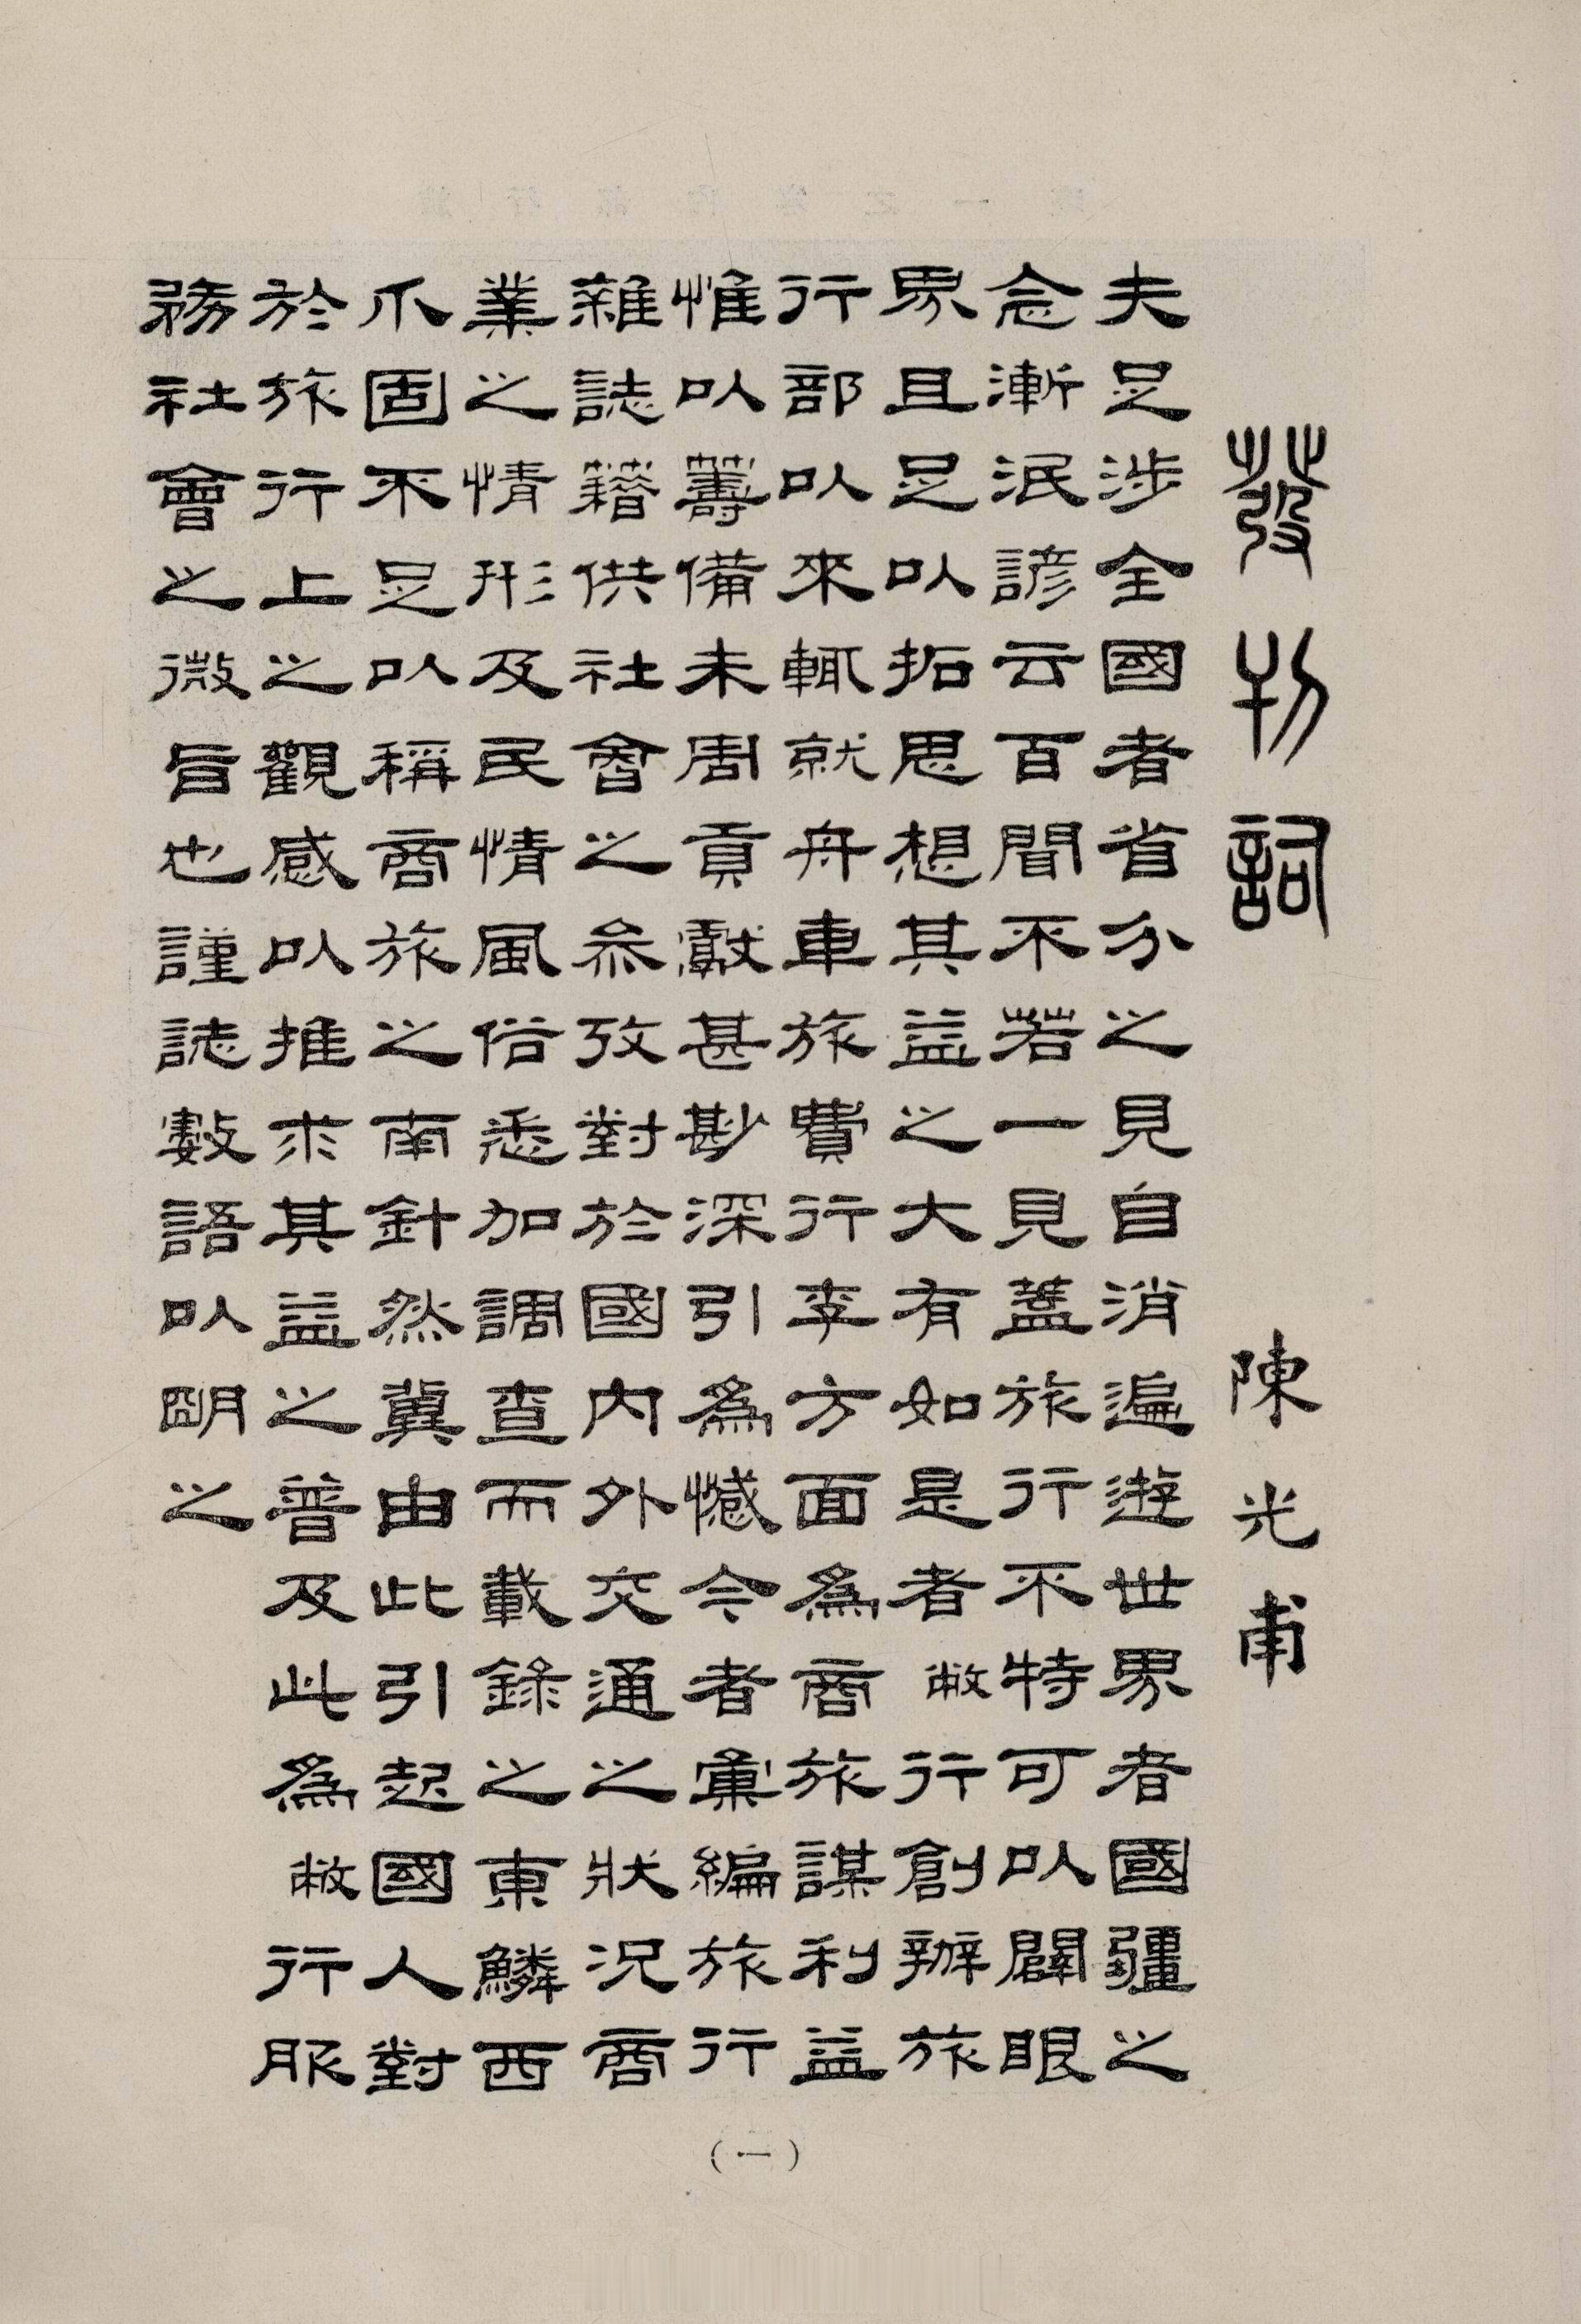 發刊詞
陳光甫
夫足涉全國者省分之見自消遍遊世界者國疆之
念漸泯諺云百聞不若一見蓋旅行不特可以闢眼
界且足以拓思想其益之大有如是者敝行創辦旅
行部以來輒就舟車旅費行李方面為商旅謀利益
惟以籌備未周貢獻甚尠深引為憾今者彙編旅行
雜誌藉供社會之參攷對於國內外交通之狀況商
業之情形及民情風俗悉加調查而載錄之東鱗西
爪固不足以稱商旅之南針然冀由此引起國人對
於旅行上之觀感以推求其益之普及此為敝行服
務社會之微旨也謹誌數語以明之
(一)